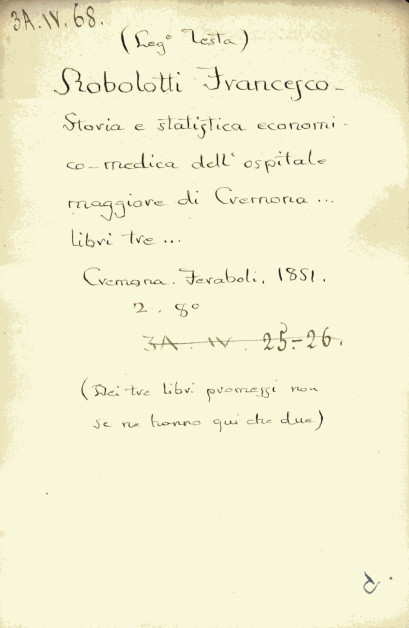 3A.IV.68.
(Leg° Testa)
Robolotti Francesco-
Storia e statistica economi-
co-medica dell' ospitale
maggiore di Cremona ...
libri tre ...
Cremona. Feraboli. 1851.
2. 8°
3A. IV. 25-26.
(Dei tre libri promessi non
se ne hanno qui che due)